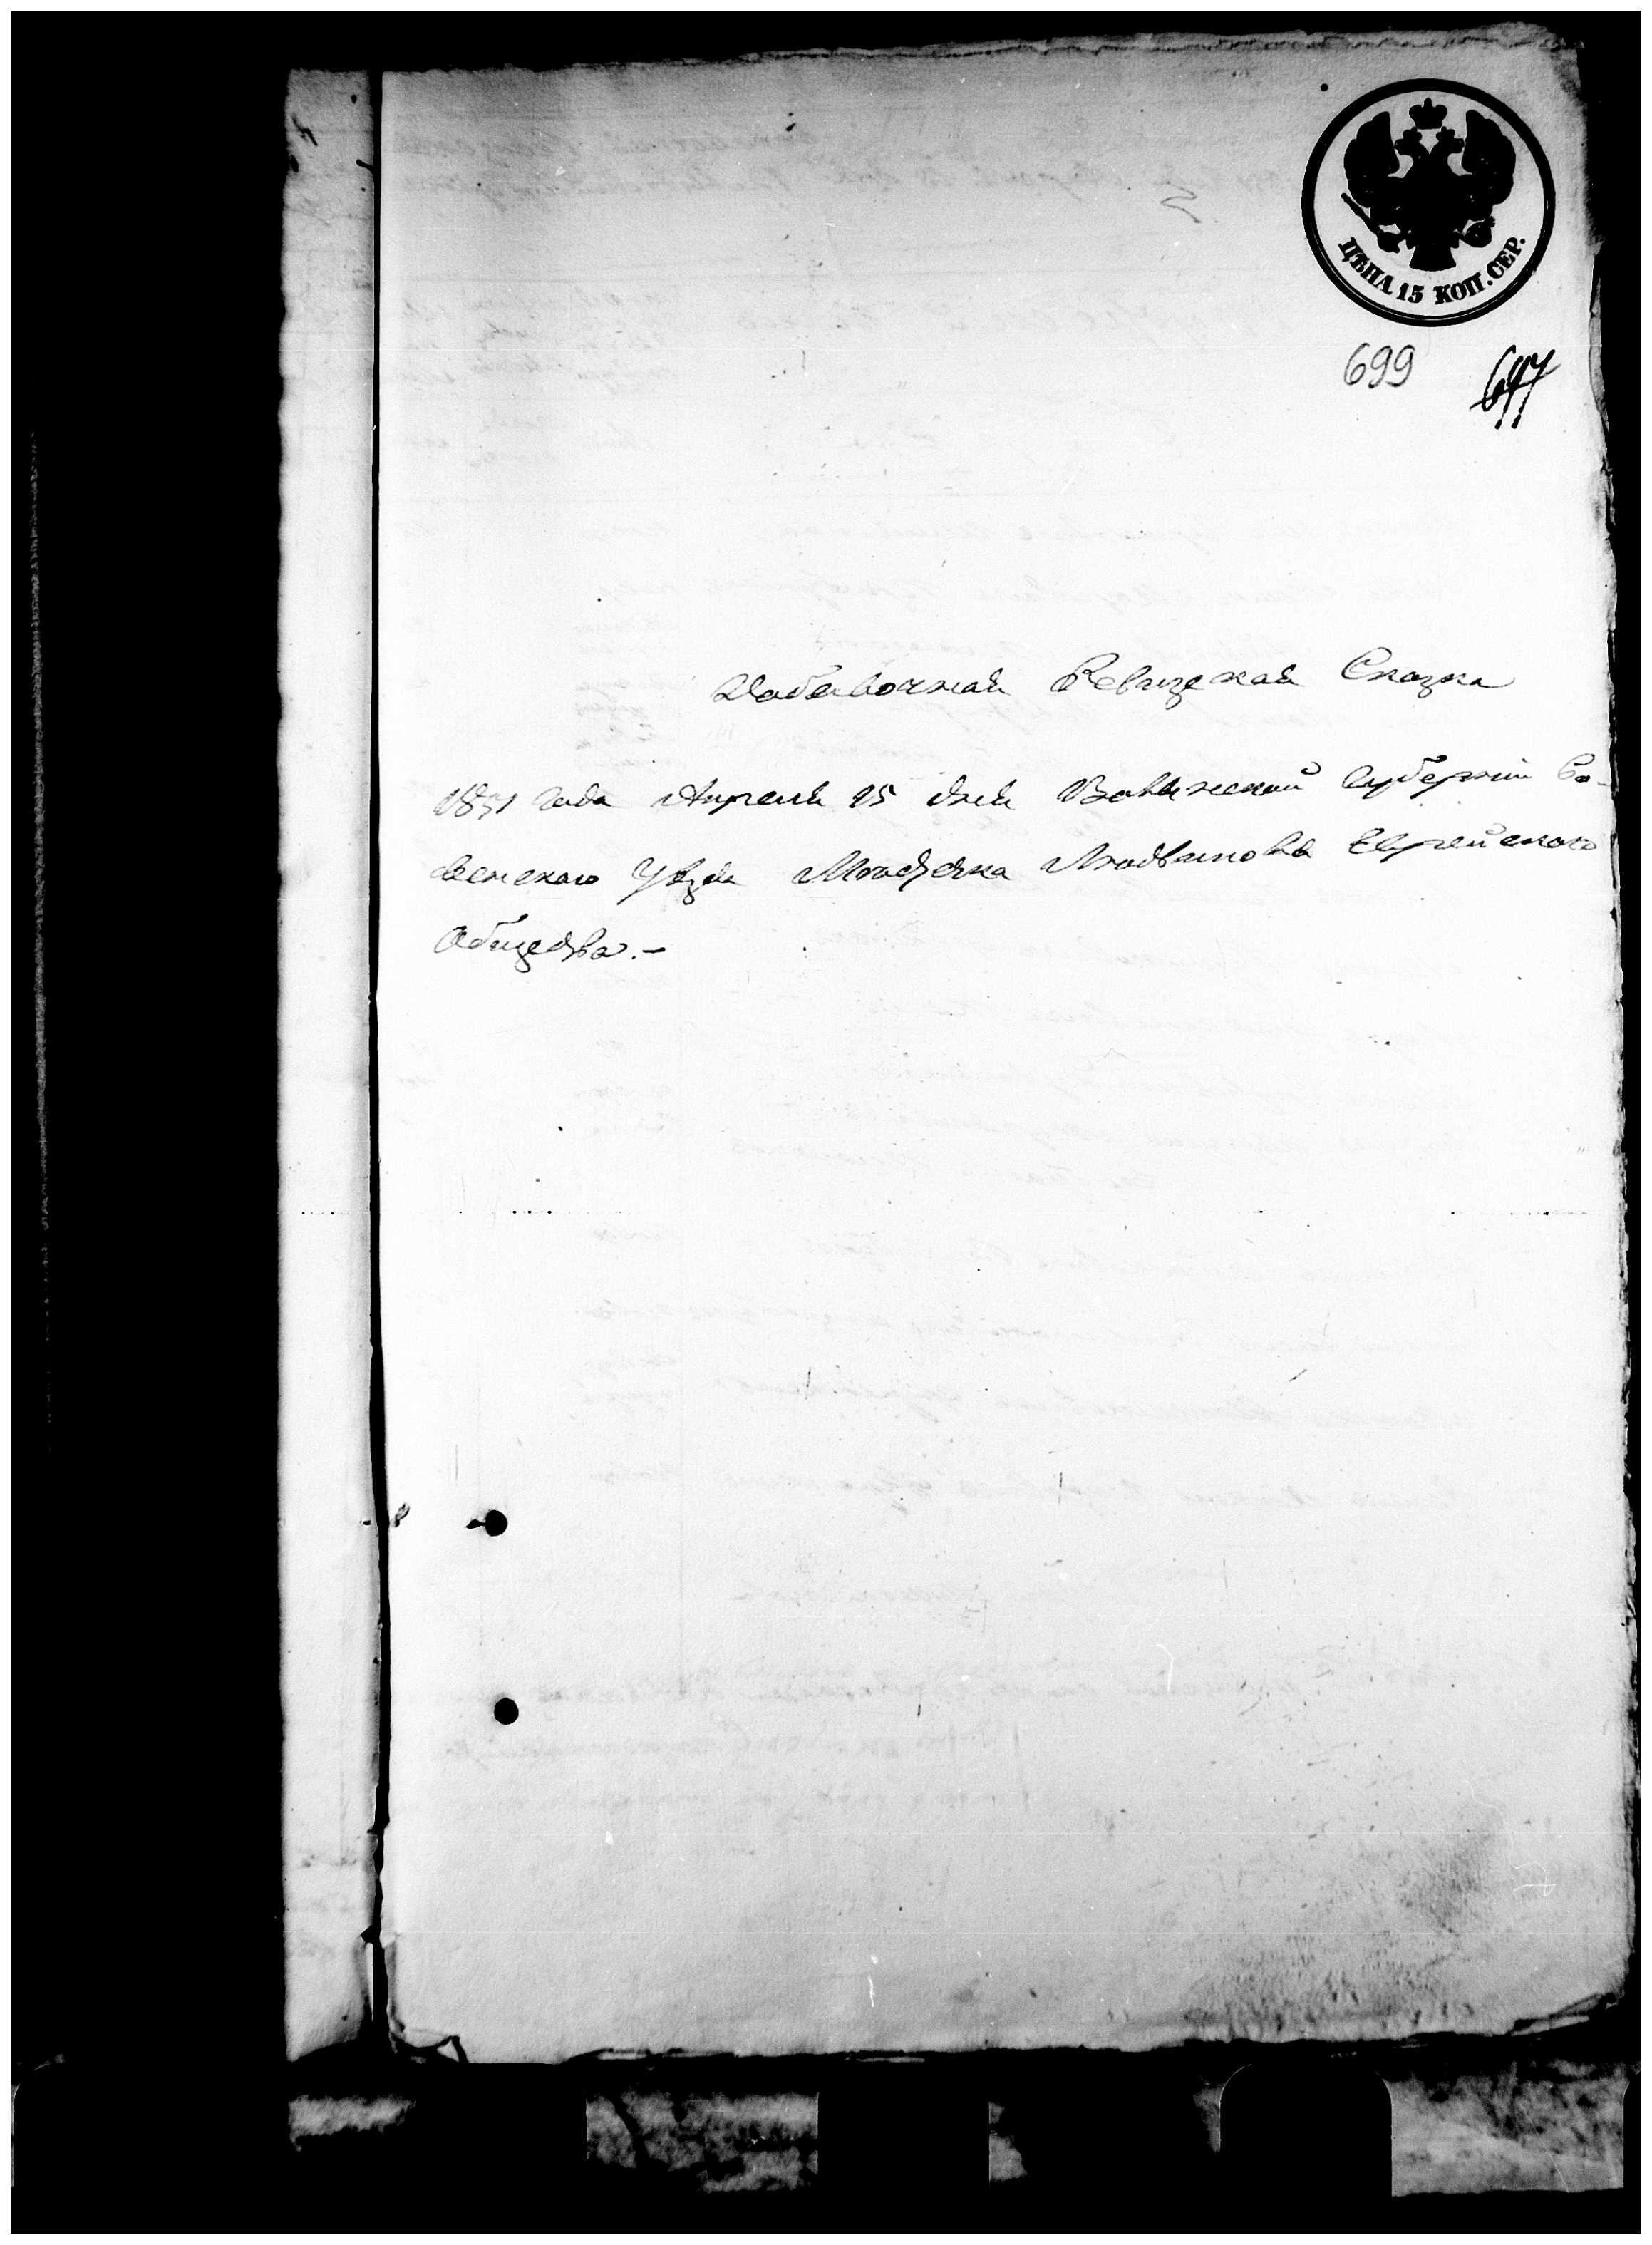 ЦѢНА 15 КОП. СЕР.
699
Добавочная Ревизская Сказка
1851 года Апреля 25 дня Волынской Губернiи Ро-
венскаго Уѣзда Мѣстечка Людвиполя Еврейскаго
Общества.-